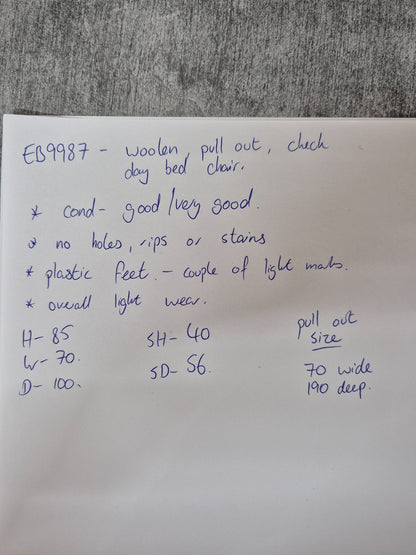 EB9987 - woolen, pull out, check
day bed chair.
* cond- good/very good.
* no holes, rips or stains
* plastic feet. - couple of light marks.
* overall light wear.
H- 85
W- 70.
D- 100.
SH- 40
SD- 56.
pull out
size
70 wide
190 deep.